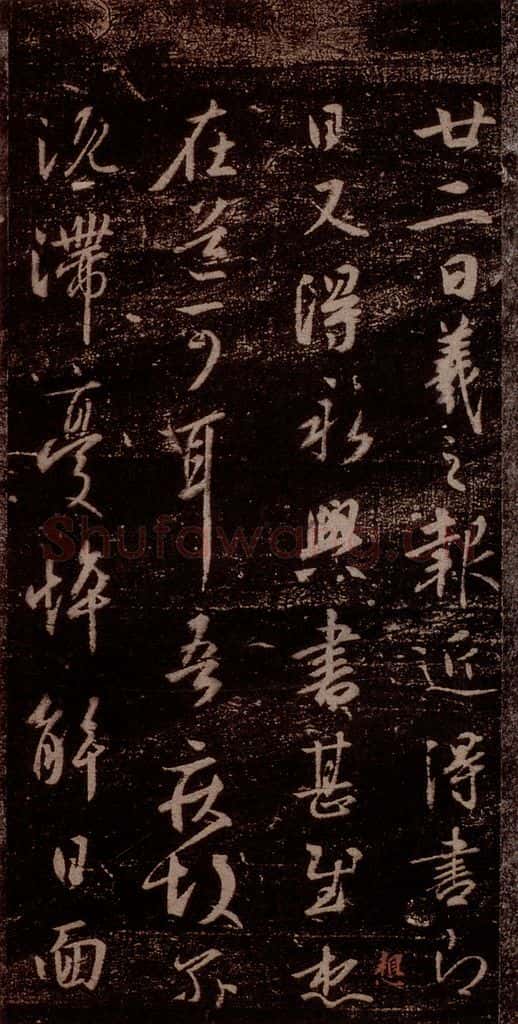 廿二日羲之報近得書即
日又得永興書甚慰想
想
在道可耳吾疾故爾
沉滯憂悴解日面
Shufawang.cn